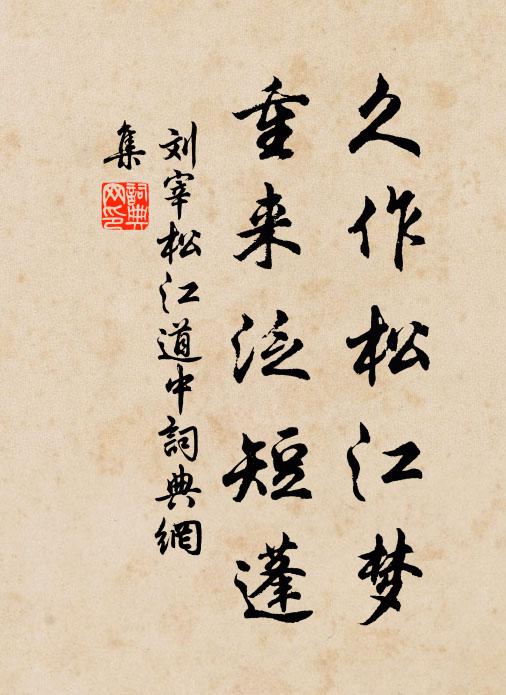 久作松江梦
重来泛短蓬
刘宰松江道中詞典網
集
詞典
网印